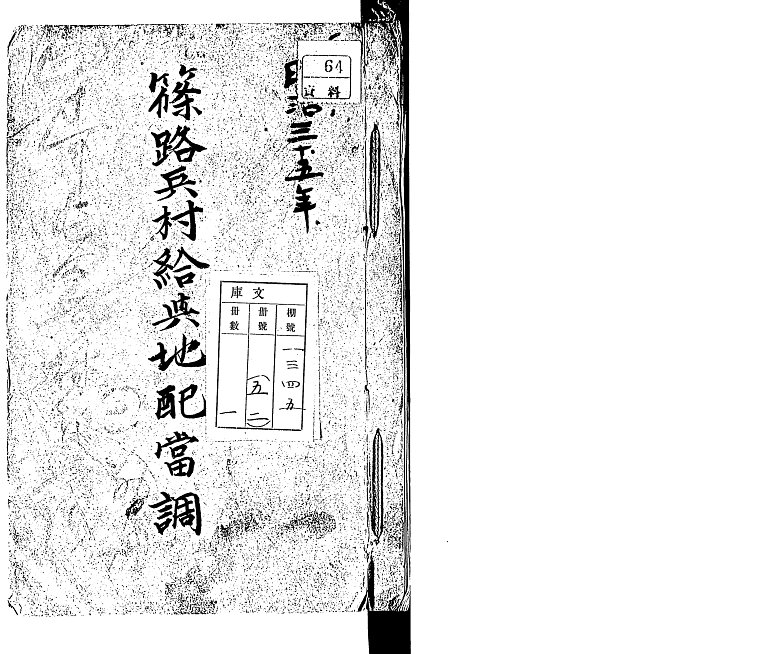 64
資料
明治三十五年
文庫
棚號
一三四五
冊號
五
(二)
冊數
一
篠路兵村給與地配當調